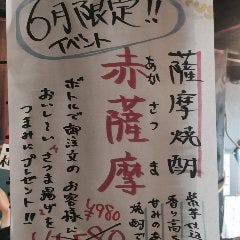 6月限定!!
イベント
薩摩焼酎
赤薩摩
あかさつま
紫芋仕込
香り高
甘みのあ
焼酎で
ボトルで御注文のお客様に
おいし〜いさつま揚げを
つまみにプレゼント!!
¥980